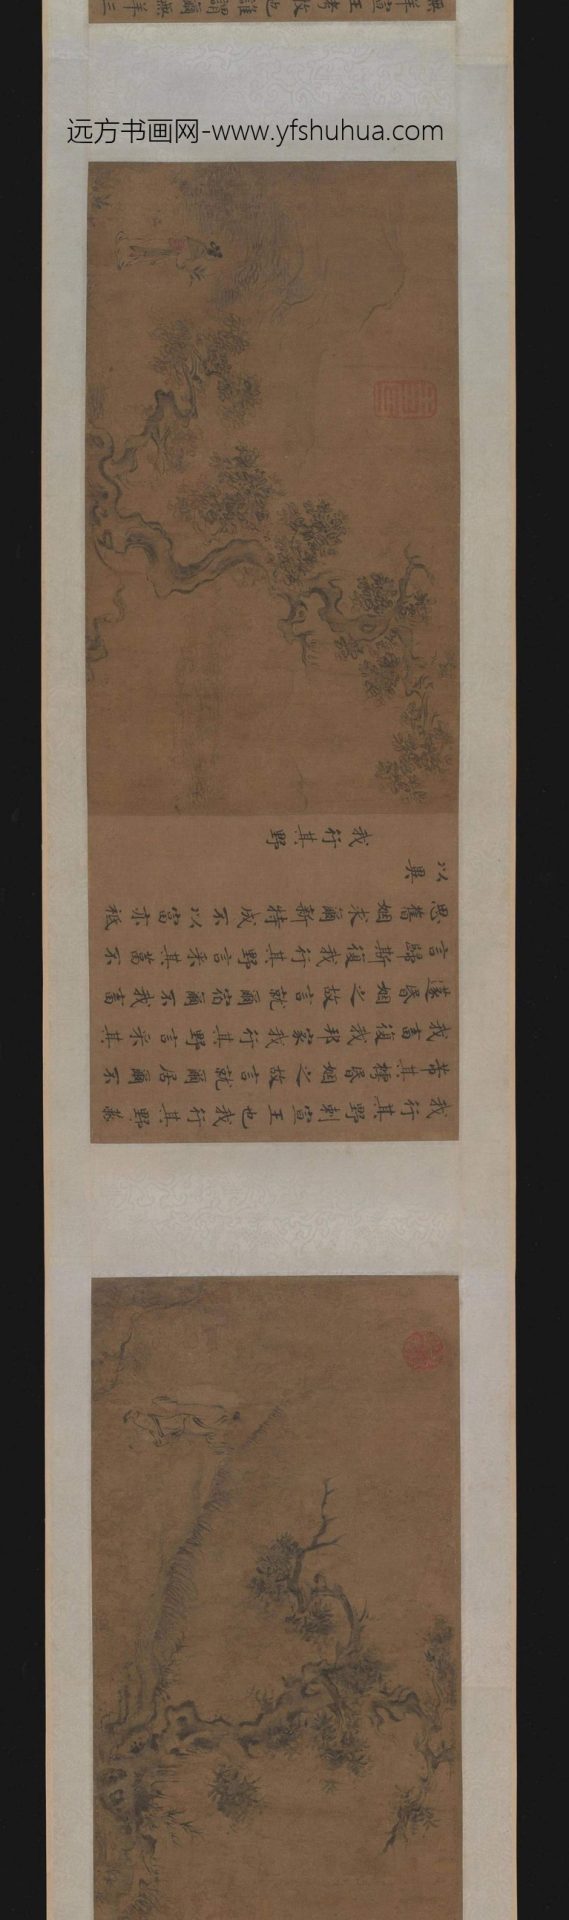 無羊宣王考牧也誰謂爾無羊三
远方书画网-www.yfshuhua.com
我行其野刺宣王也我行其野蔽
芾其樗昏姻之故言就爾居爾不
我畜復我邦家我行其野言采其
蓫昏姻之故言就爾宿爾不我畜
言歸斯復我行其野言采其葍不
思舊姻求爾新特成不以富亦祗
以異
我行其野